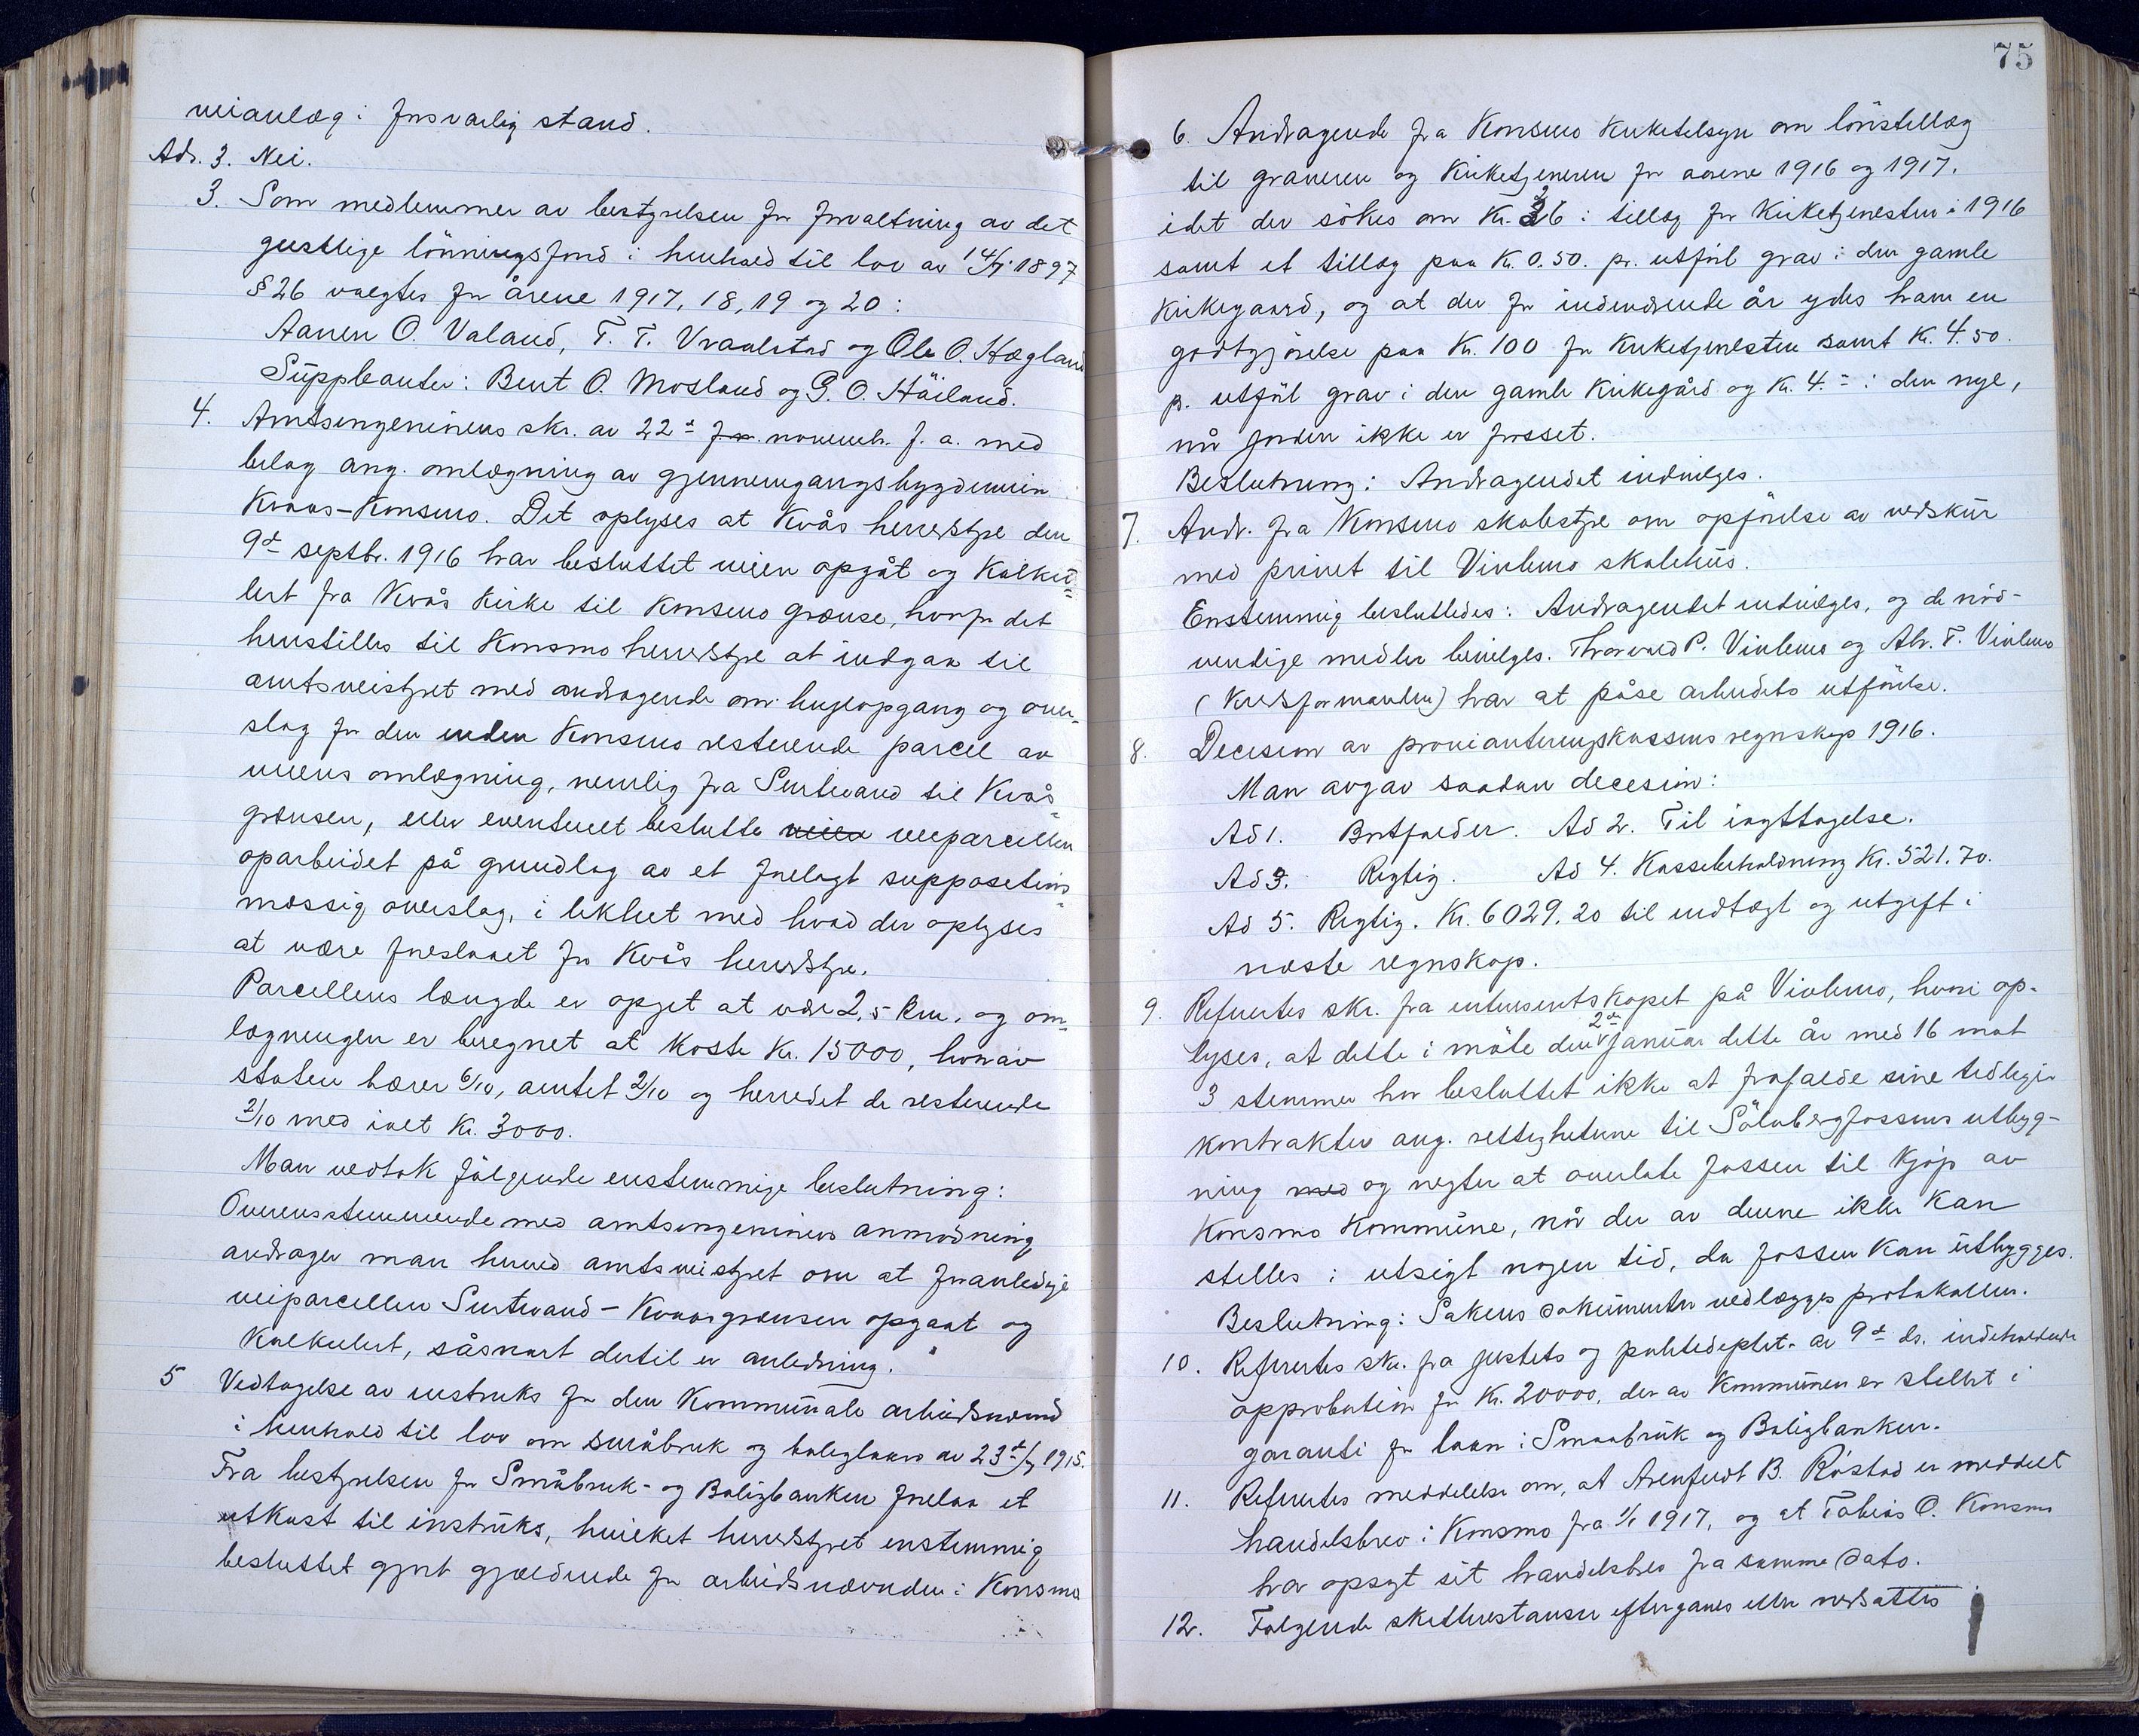 veianlæg i forsvarlig stand.
Adr. 3. Nei.
3. Som medlemmer av bestyrelsen for forvaltning av det
geistlige lönningsfond i henhold til lov av 14/7 1897
§ 26 valgtes for årene 1917, 18, 19 og 20:
Aanen O. Valand, T. T. Vraalstad og Ole O. Hægland
Suppleanter: Bent O. Mosland og G. O. Höiland.
4. Amtsingeniörens skr. av 22de novembr. f. a. med
bilag ang. omlægning av gjennemgangsbygdeveien
Kvaas-Konsmo. Det oplyses at Kvås herredstyre den
9de septbr. 1916 har besluttet veien opgåt og kalku=
lert fra Kvås kirke til Konsmo grænse, hvorfor det
henstilles til Konsmo herredstyre at indgaa til
amtsveistyret med andragende om linjeopgang og over=
slag for den inden Konsmo resterende parcel av
veiens omlægning, nemlig fra Surtevand til Kvås=
grænsen, eller eventuelt beslutte veien veiparcellen
oparbeidet på grundlag av et forelagt suppositions=
mæssig overslag, i likhet med hvad der oplyses
at være foreslaaet for Kvås herredstyre.
Parcellens længde er opgit at være 2,5 km. og om=
lægningen er beregnet at koste Kr. 15000, hvorav
staten bærer 6/10, amtet 2/10 og herredet de resterende
2/10 med ialt Kr. 3000.
Man vedtok fölgende enstemmige beslutning:
Overensstemmende med amtsingeniörens anmodning
andrager man herved amtsveistyret om at foranledige
veiparcellen Surtevand - Kvaasgrænsen opgaat og
kalkulert, såsnart dertil er anledning.
5 Vedtagelse av instruks for den kommunale arbeidsnævnd
i henhold til lov om småbruk og boliglaan av 23de/7 1915.
Fra bestyrelsen for Småbruk- og Boligbanken forelaa et
utkast til instruks, hvilket herredstyret enstemmig
besluttet gjort gjældende for arbeidsnævnden i Konsmo
75
6. Andragende fra Konsmo Kirketilsyn om lönstillæg
til graveren og Kirketjeneren for aarene 1916 og 1917,
idet der sökes om Kr. 26 i tillæg for Kirketjenesten i 1916
samt et tillæg paa Kr. 0.50. pr. utfört grav i den gamle
Kirkegaard, og at der for indeværende år ydes ham en
godtgjörelse paa Kr. 100 for Kirketjenesten samt Kr. 4.50.
pr. utfört grav i den gamle Kirkegård og Kr. 4.- i den nye,
når jorden ikke er frosset.
Beslutning: Andragendet indvilges.
7. Andr. fra Konsmo skolestyre om opförelse av vedskur
med privet til Vivlemo skolehus.
Enstemmig besluttedes: Andragendet indvilges, og de nöd-
vendige midler bevilges. Thorvald P. Vivlemo og Abr. T. Vivlemo
(Kredsformanden) har at påse arbeidets utförelse.
8. Decision av provianteringskassens regnskap 1916.
Man avgav saadan decesion:
Ad 1. Bortfalder. Ad 2. Til iagttagelse.
Ad 3. Rigtig. Ad 4. Kassebeholdning Kr. 521.70.
Ad 5. Rigtig. Kr. 6029.20 til indtægt og utgift i
næste regnskap.
9. Refertes skr. fra interessentskapet på Vivlemo, hvori op-
lyses, at dette i möte den 2de januar dette år med 16 mot
3 stemmer har besluttet ikke at frafalde sine tidligere
kontrakter ang. rettighetene til Sålabergfossens utbyg-
ning med og negter at overlate fossen til kjöp av
Konsmo Kommune, når der av denne ikke kan
stilles i utsigt nogen tid, da fossen kan utbygges.
Beslutning: Sakens dokumenter vedlægges protokollen.
10. Refertes skr. fra justits og politideptet. av 9de ds. indeholdende
approbation for Kr. 20000, der av Kommunen er stillet i
garanti for laan i Smaabruk og Boligbanken.
11. Refertes meddelelse om, at Arenfeldt B. Röstad er meddelt
handelsbrev i Konsmo fra 1/1 1917, og at Tobias O. Konsmo
har opsagt sit handelsbrev fra samme dato.
12. Følgende skatterestanser eftergaves eller nedsattes